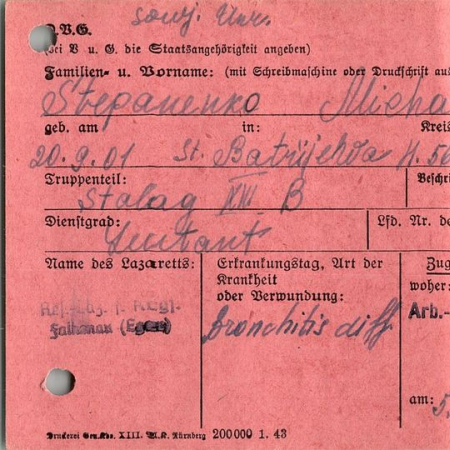 sowj. Ukr.
D.V.G.
(bei V u. G. die Staatsangehörigkeit angeben)
Familien- u. Vorname: (mit Schreibmaschine oder Druckschrift aus
Stepanenko Micha
geb. am in: Kreis
20.9.01 St.
Truppenteil: Beschri
Stalag XIII B
Dienstgrad: Lfd. Nr. de
Leutnant
Name des Lazaretts: Erkrankungstag, Art der Krankheit oder Verwundung: Zug
woher:
Res.-Laz. f. Kgf.
Falkenau (Eger)
Bronchitis diff. Arb.-
am: 5.
Druckerei Gen.Kdo. XIII. A.K. Nürnberg 200000 1. 43